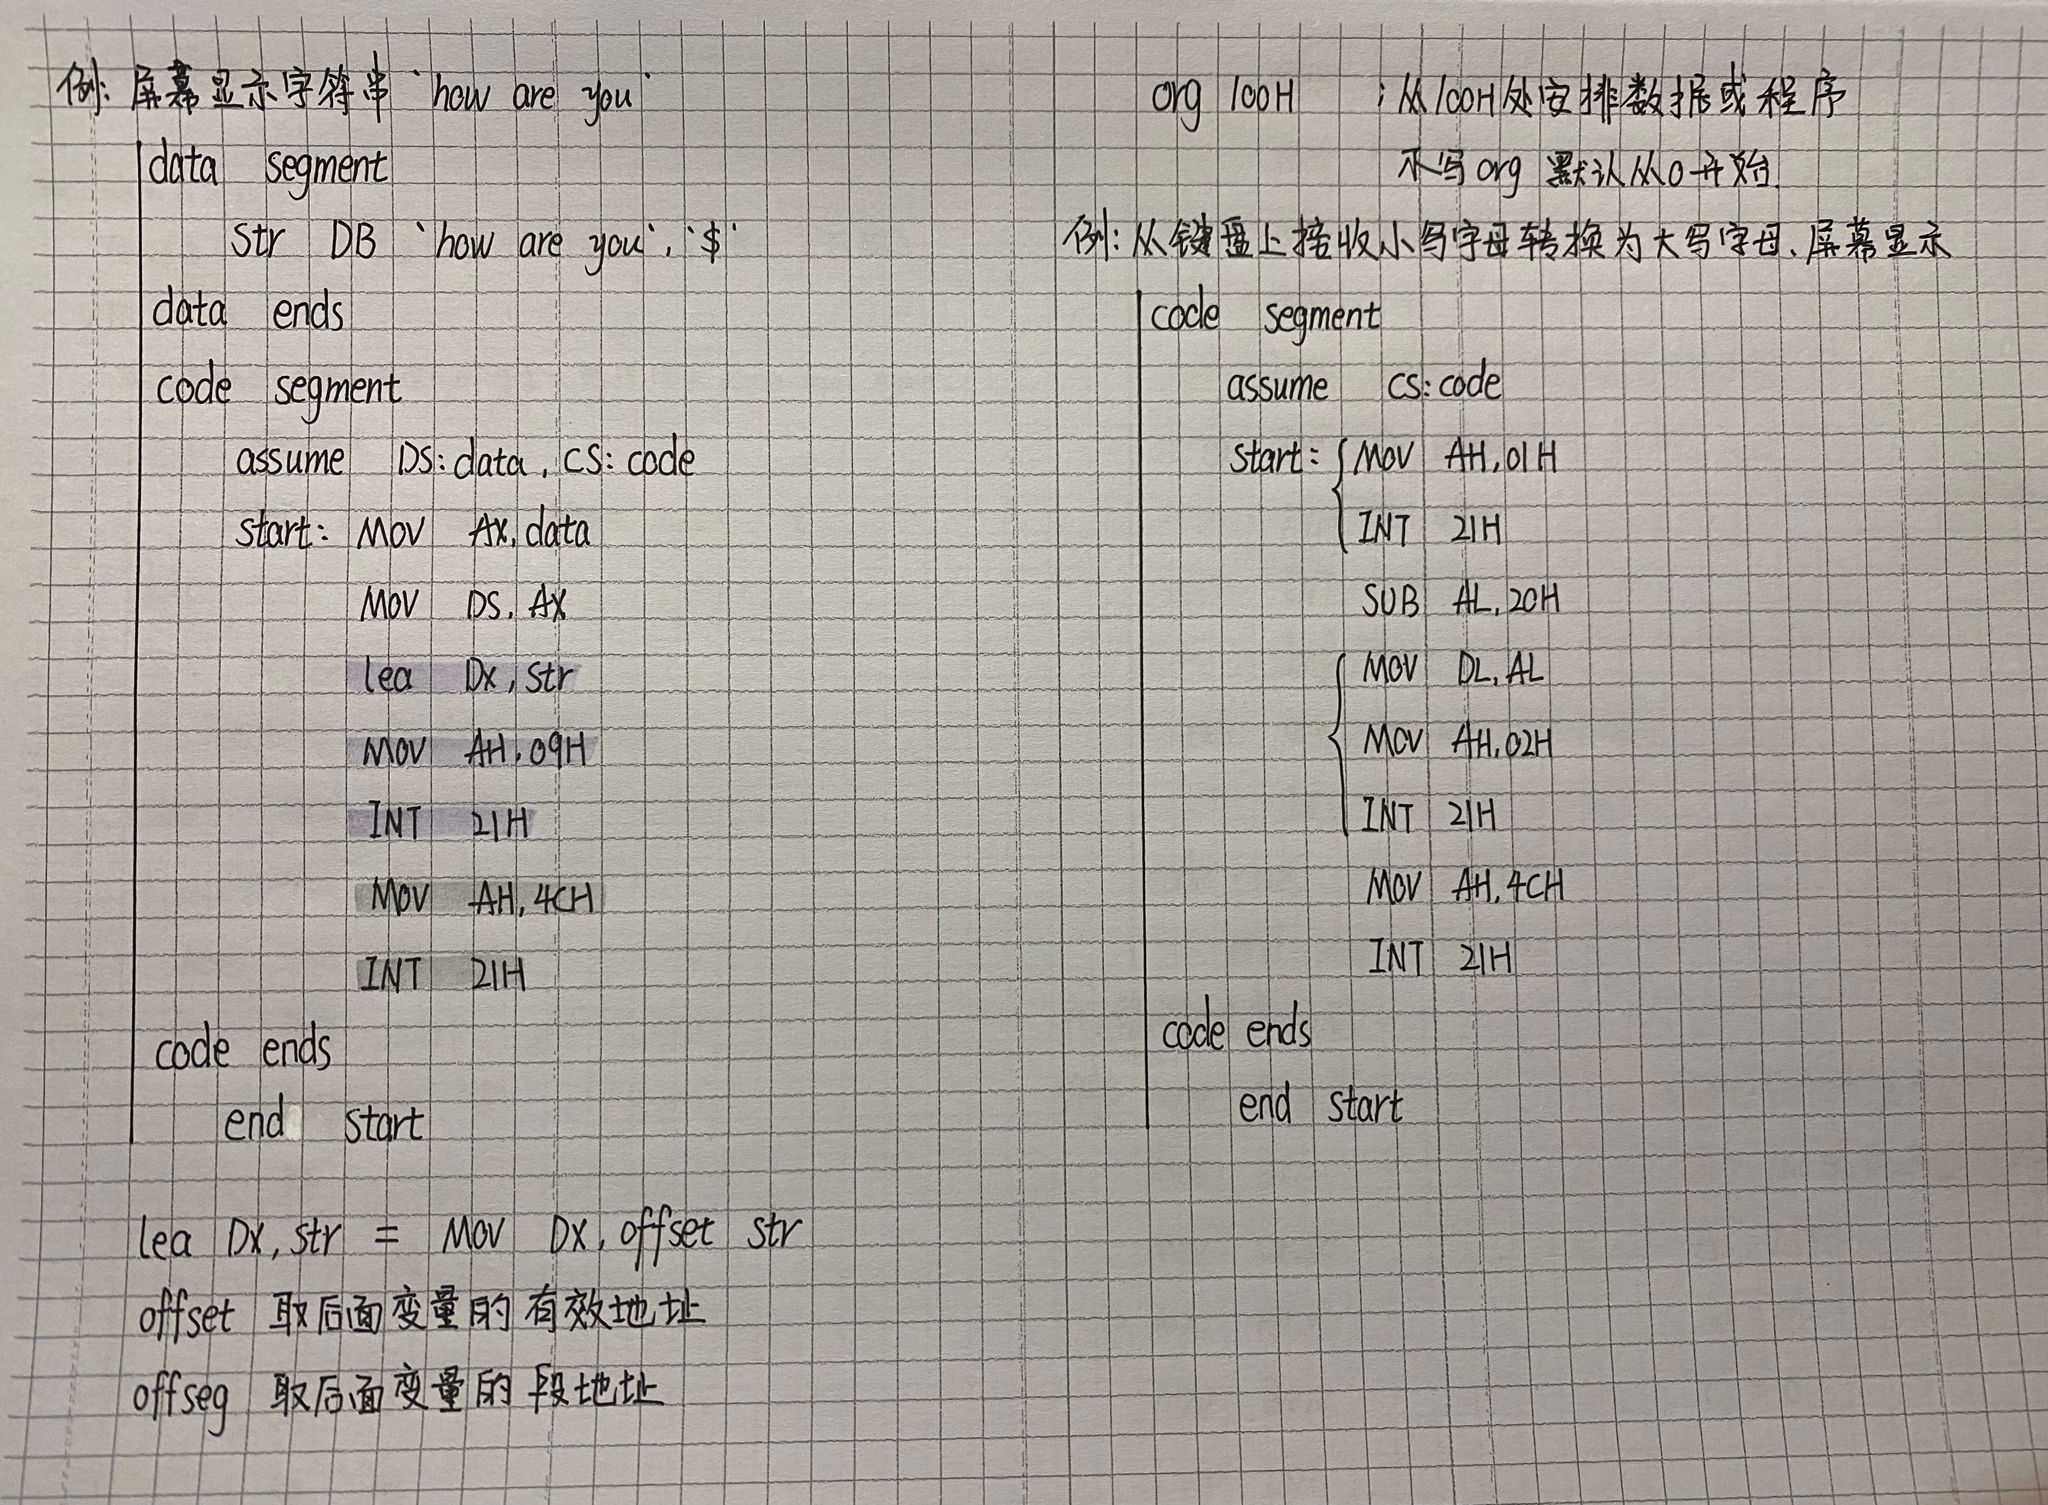 例: 屏幕显示字符串 'how are you'
data segment
str DB 'how are you', '$'
data ends
code segment
assume DS: data, CS: code
start: MOV AX, data
MOV DS, AX
lea DX, str
MOV AH, 09H
INT 21H
MOV AH, 4CH
INT 21H
code ends
end start
lea DX, str = MOV DX, offset str
offset 取后面变量的有效地址
offseg 取后面变量的段地址
org 100H ; 从100H处安排数据或程序
不写org 默认从0开始.
例: 从键盘上接收小写字母转换为大写字母、屏幕显示
code segment
assume CS: code
start: MOV AH, 01H
INT 21H
SUB AL, 20H
MOV DL, AL
MOV AH, 02H
INT 21H
MOV AH, 4CH
INT 21H
code ends
end start